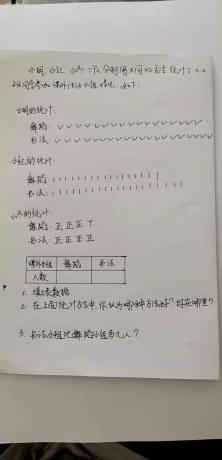 小明、小红、小东三人分别用不同的方法统计了二.2
班同学参加课外活动小组情况，如下：
小明的统计：
舞蹈：✓✓✓✓✓✓✓✓✓✓✓✓✓✓✓✓✓
书法：✓✓✓✓✓✓✓✓✓✓✓✓✓✓✓✓✓✓✓✓
小红的统计：
舞蹈：|||||||||||||||||
书法：||||||||||||||||||||
小东的统计：
舞蹈：正正正丅
书法：正正正正
课外小组 舞蹈 书法
人数
1. 填上表数据
2. 在上面统计方法中，你认为哪种方法好？好在哪里？
3. 书法小组比舞蹈小组多几人？